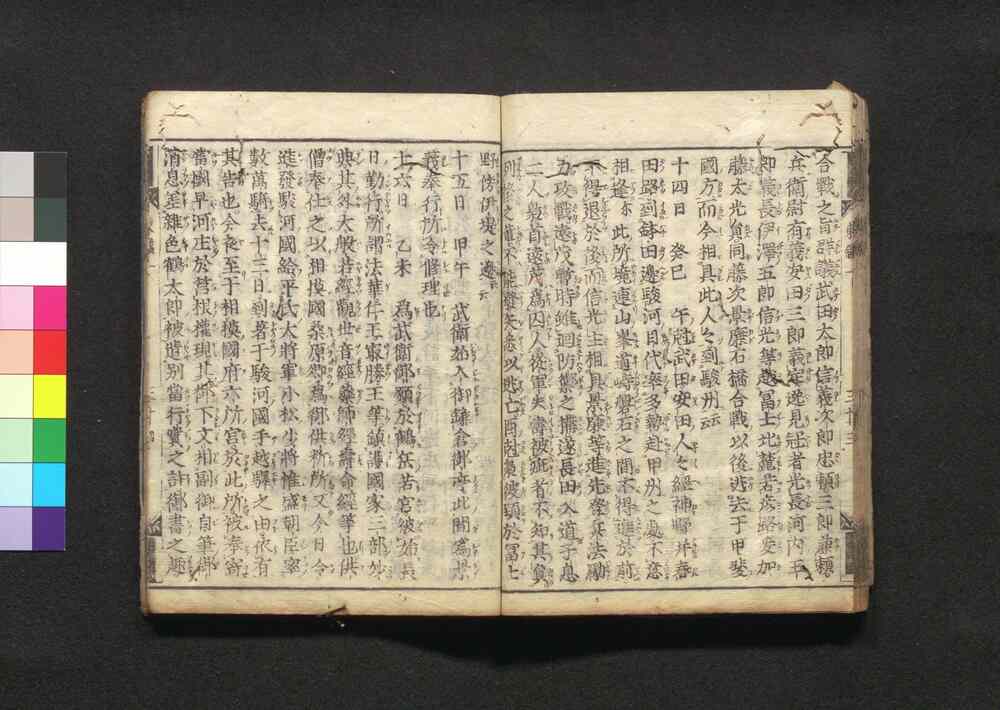 合戰之旨群議武田太郎信義次郎忠頼三郎兼頼
兵衛尉有義安田三郎義定逸見冠者光長河内五
郎義長伊澤五郎信光等越冨士北麓若彦路爰加
藤太光員同藤次景廉石橋合戰以後逃去于甲斐
國方而今相具此人々到駿州云云
十四日 癸巳 午尅武田安田人々經神野并春
田路到鉢田邊駿河目代率多勢赴甲州之處不意
相逢于此所境連山峯道峙磐石之間不得進於前
不得退於後而信光主相具景廉等進先登兵法勵
五攻戰遠茂暫時雖廻防禦之搆遂長田入道子息
二人梟首遠茂爲囚人從軍失壽被疵者不知其員
列後之輩不能發矢悉以逃亡酉尅梟彼頸於冨士
野傍伊堤之邊云云
十五日 甲午 武衛始入御鎌倉御亭此間爲景
義奉行所令修理也
十六日 乙未 爲武衛御願於鶴岳若宮被始長
日勤行所謂法華仁王最勝王等鎮護國家三部妙
典其外大般若經觀世音經藥師經壽命經等也供
僧奉仕之以相摸國桑原郷爲御供料所又今日令
進發駿河國給平氏大將軍小松少將惟盛朝臣率
數萬騎去十三日到著于駿河國手越驛之由依有
其告也今夜至于相摸國府六所宮於此所被奉寄
當國早河庄於筥根權現其御下文相副御自筆御
消息差雜色鶴太郎被遣別當行實之許御書之趣